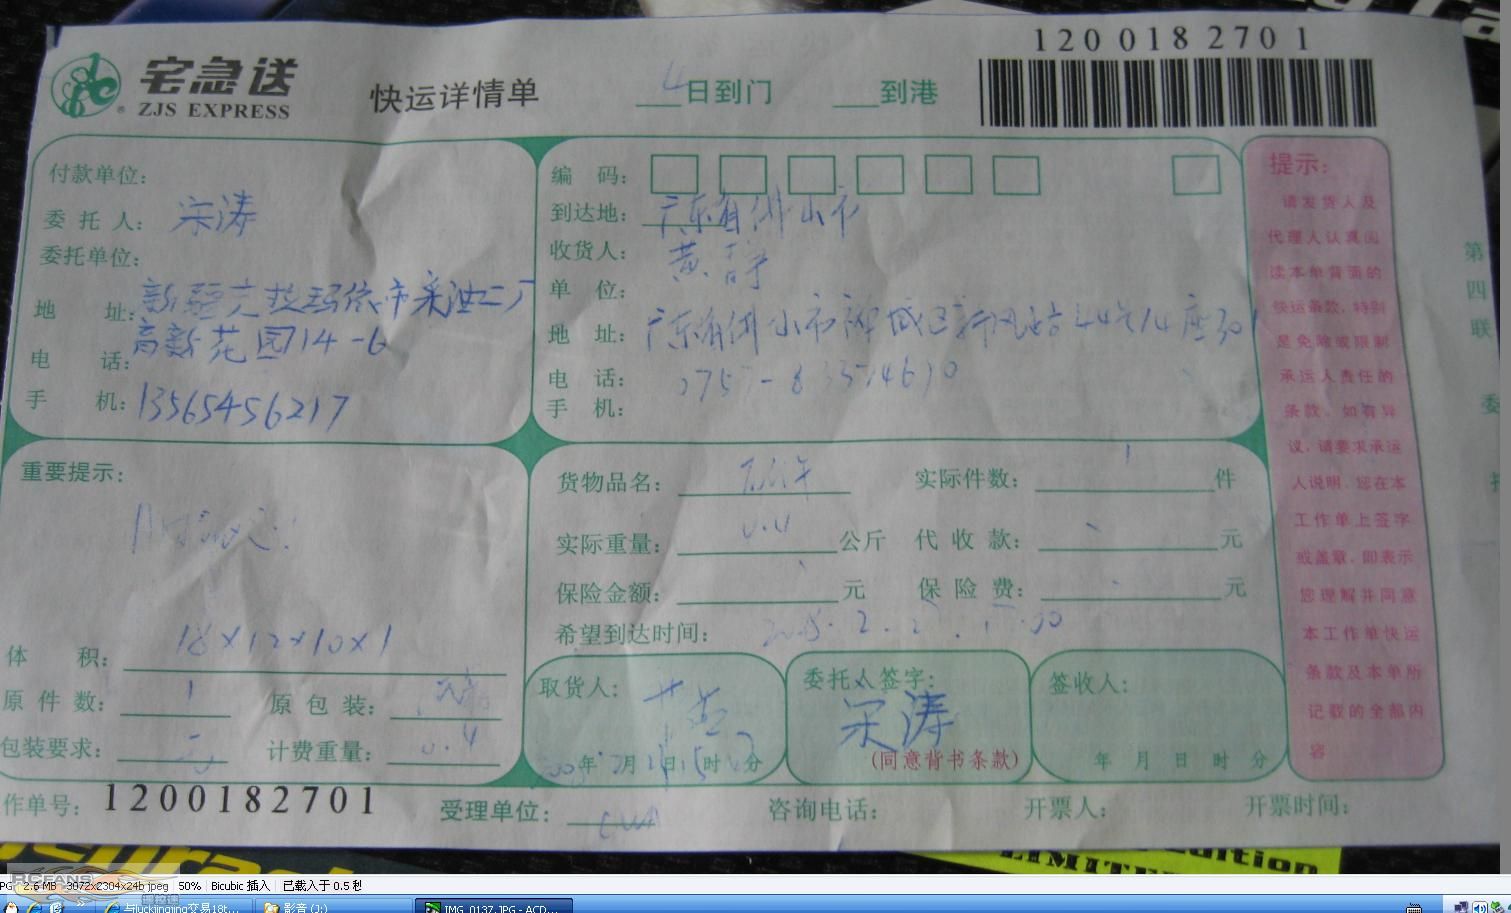 宅急送
ZJS EXPRESS
快运详情单
4日到门
到港
1200182701
付款单位:
委托人: 宋涛
委托单位:
地 址: 新疆克拉玛依市采油二厂
高新花园14-6
电 话:
手 机: 13565456217
编 码:
到达地: 广东省佛山市
收货人: 黄静
单 位:
地 址: 广东省佛山市禅城区
电 话:
手 机:
提示:
请发货人及
代理人认真阅
读本单背面的
快运条款,特别
是免除或限制
承运人责任的
条款,如有异
议,请要求承运
人说明,您在本
工作单上签字
或盖章,即表示
您理解并同意
本工作单快运
条款及本单所
记载的全部内
容
第四联
委
重要提示:
体 积: 18×12×10×1
原件数: 1
原包装:
包装要求: 无
计费重量: 0.4
货物品名:
实际件数: 1 件
实际重量: 0.4 公斤
代收款: 元
保险金额: 元
保险费: 元
希望到达时间:
取货人:
年 月 日 时 分
委托人签字:
宋涛
(同意背书条款)
签收人:
年 月 日 时 分
作单号: 1200182701
受理单位:
咨询电话:
开票人:
开票时间:
LIMITED Edition
RCFANS
2.6 MB 3072x2304x24b jpeg 50% Bicubic 插入 已载入于 0.5 秒
与luckjingjing交易18t...
影音 (J:)
IMG_0137.JPG - ACD...